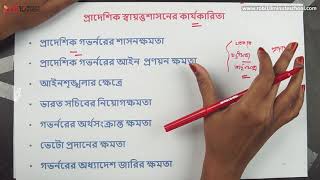 প্রাদেশিক স্বায়ত্তশাসনের কার্যকারিতা
প্রাদেশিক গভর্নরের শাসনক্ষমতা
প্রাদেশিক গভর্নরের আইন প্রণয়ন ক্ষমতা
আইনশৃঙ্খলার ক্ষেত্রে
ভারত সচিবের নিয়োগক্ষমতা
গভর্নরের অর্থসংক্রান্ত ক্ষমতা
ভেটো প্রদানের ক্ষমতা
গভর্নরের অধ্যাদেশ জারির ক্ষমতা